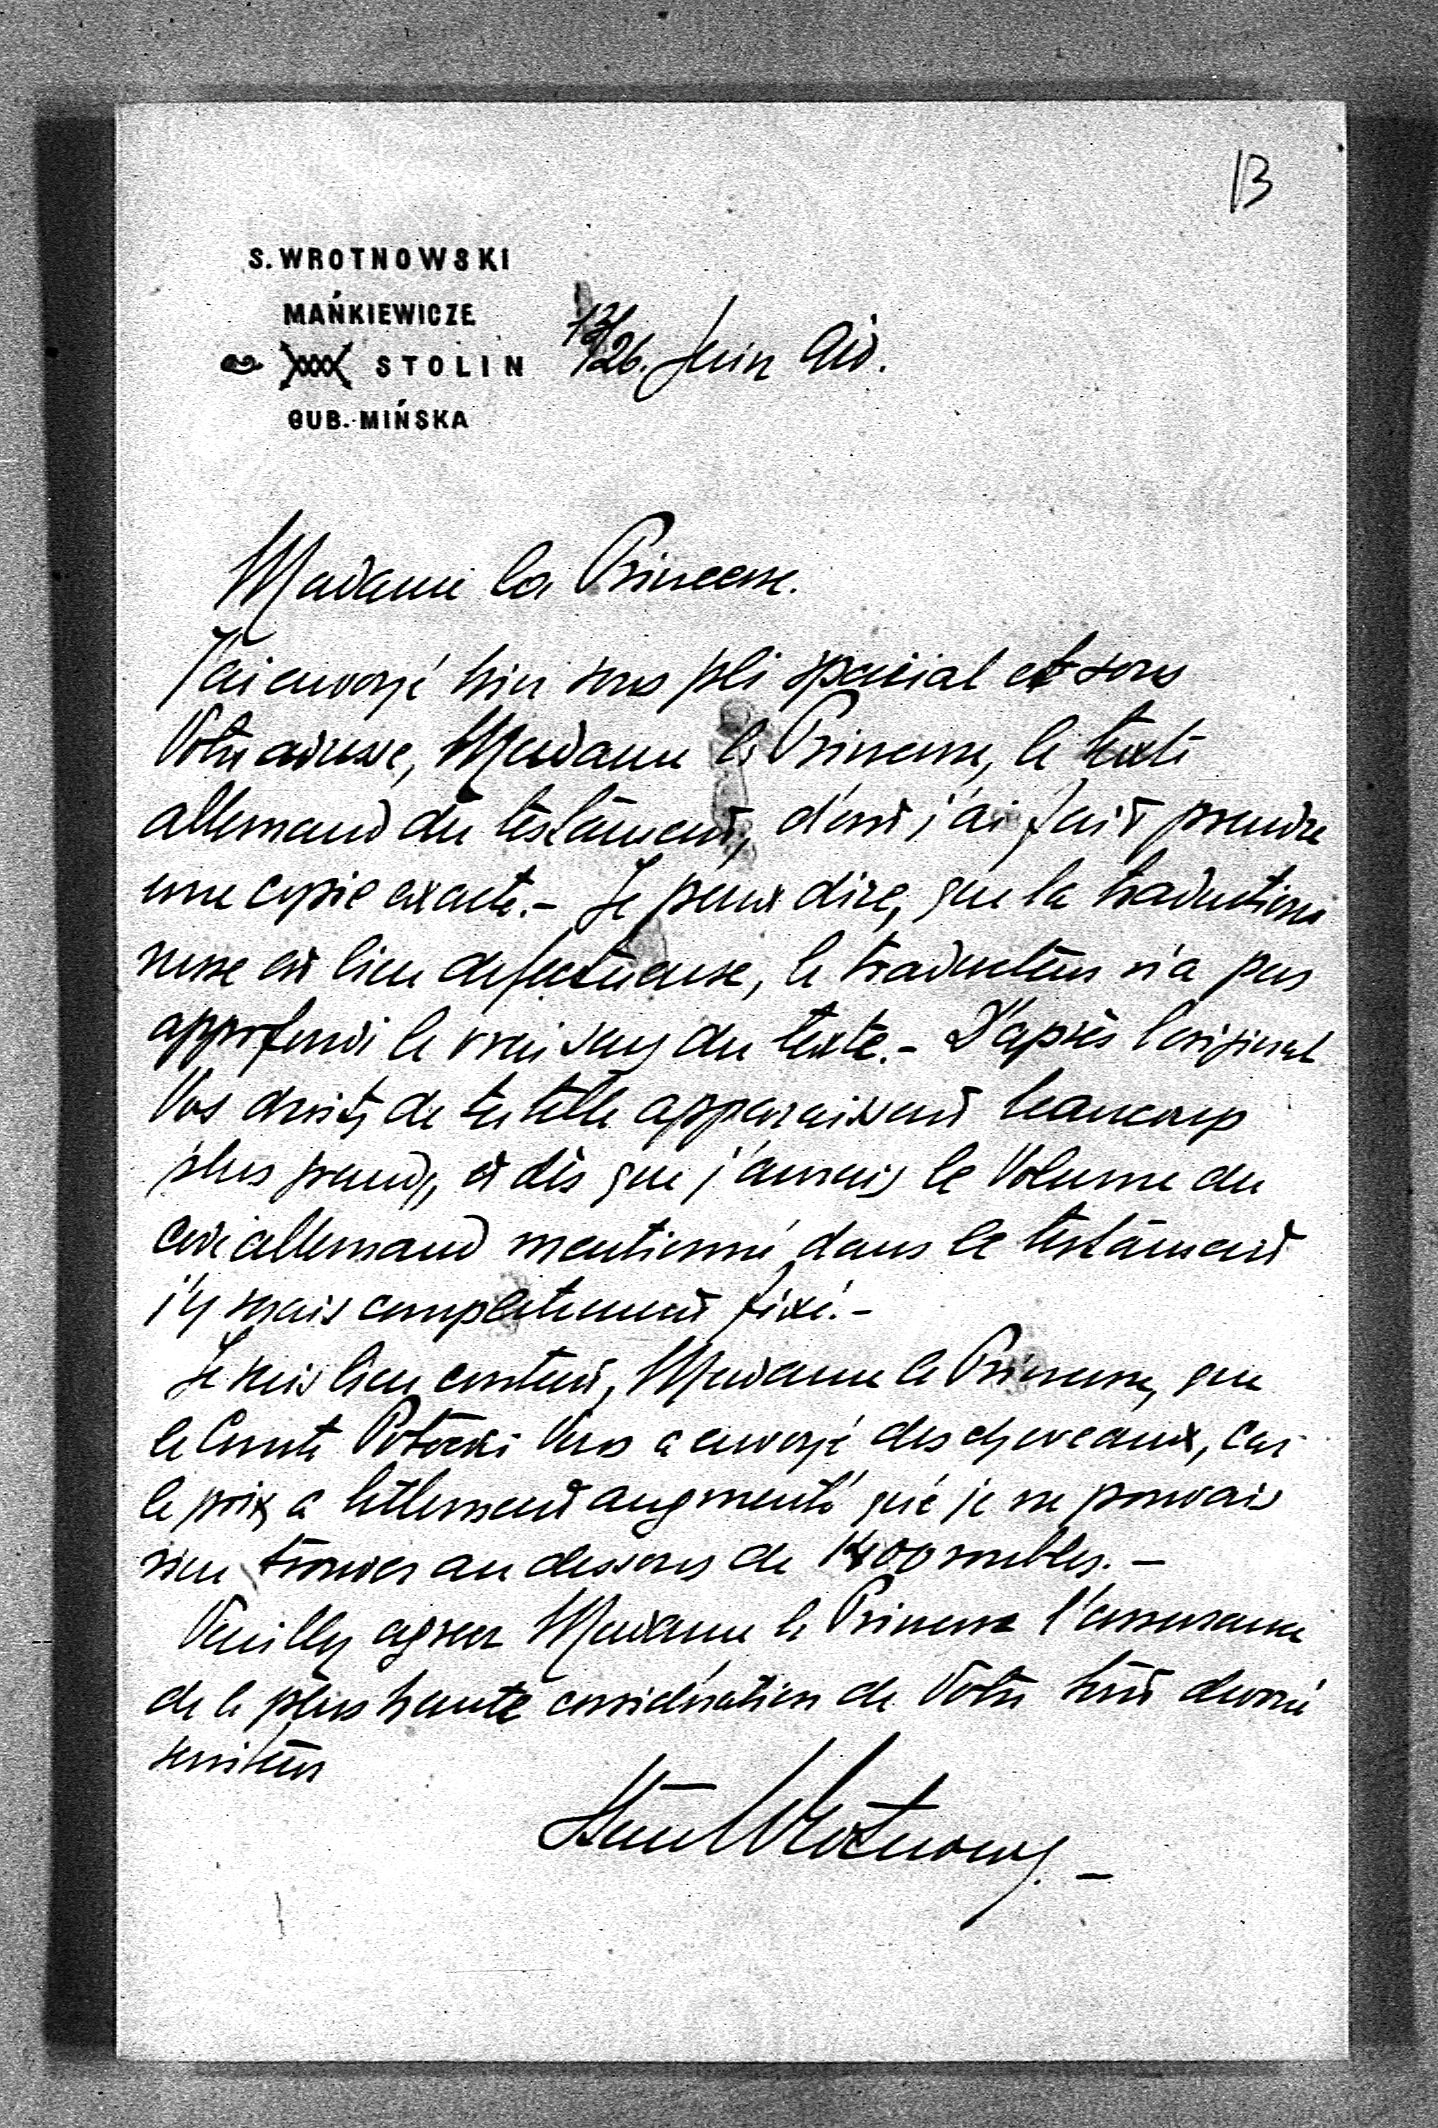 13
S. WROTNOWSKI
MAŃKIEWICZE
STOLIN
GUB. MIŃSKA
13/26. Juin
Madame la Princesse.
J'ai envoyé hier sous pli spécial et sous
Votre adresse, Madame la Princesse, le texte
allemand du testament, dont j'ai fait prendre
une copie exacte. – Je peux dire, que la traduction
russe est bien defectueuse, le traducteur n'a pas
approfondi le vrai sens du texte. – D'après l'original
Vos droits de tutelle apparaissent beaucoup
plus grands, et dès que j'aurais le Volume du
code allemand mentionné dans le testament
j'y serais completement fixé. –
Je suis bien content, Madame la Princesse, que
le Comte Potocki Vous a envoyé des chevaux, car
le prix a tellement augmenté que je ne pouvais
rien trouver au dessous de 1400 roubles. –
Veuillez agréer Madame la Princesse l'assurance
de la plus haute considération de Votre tout devoué
serviteur
Wrotnowski. –